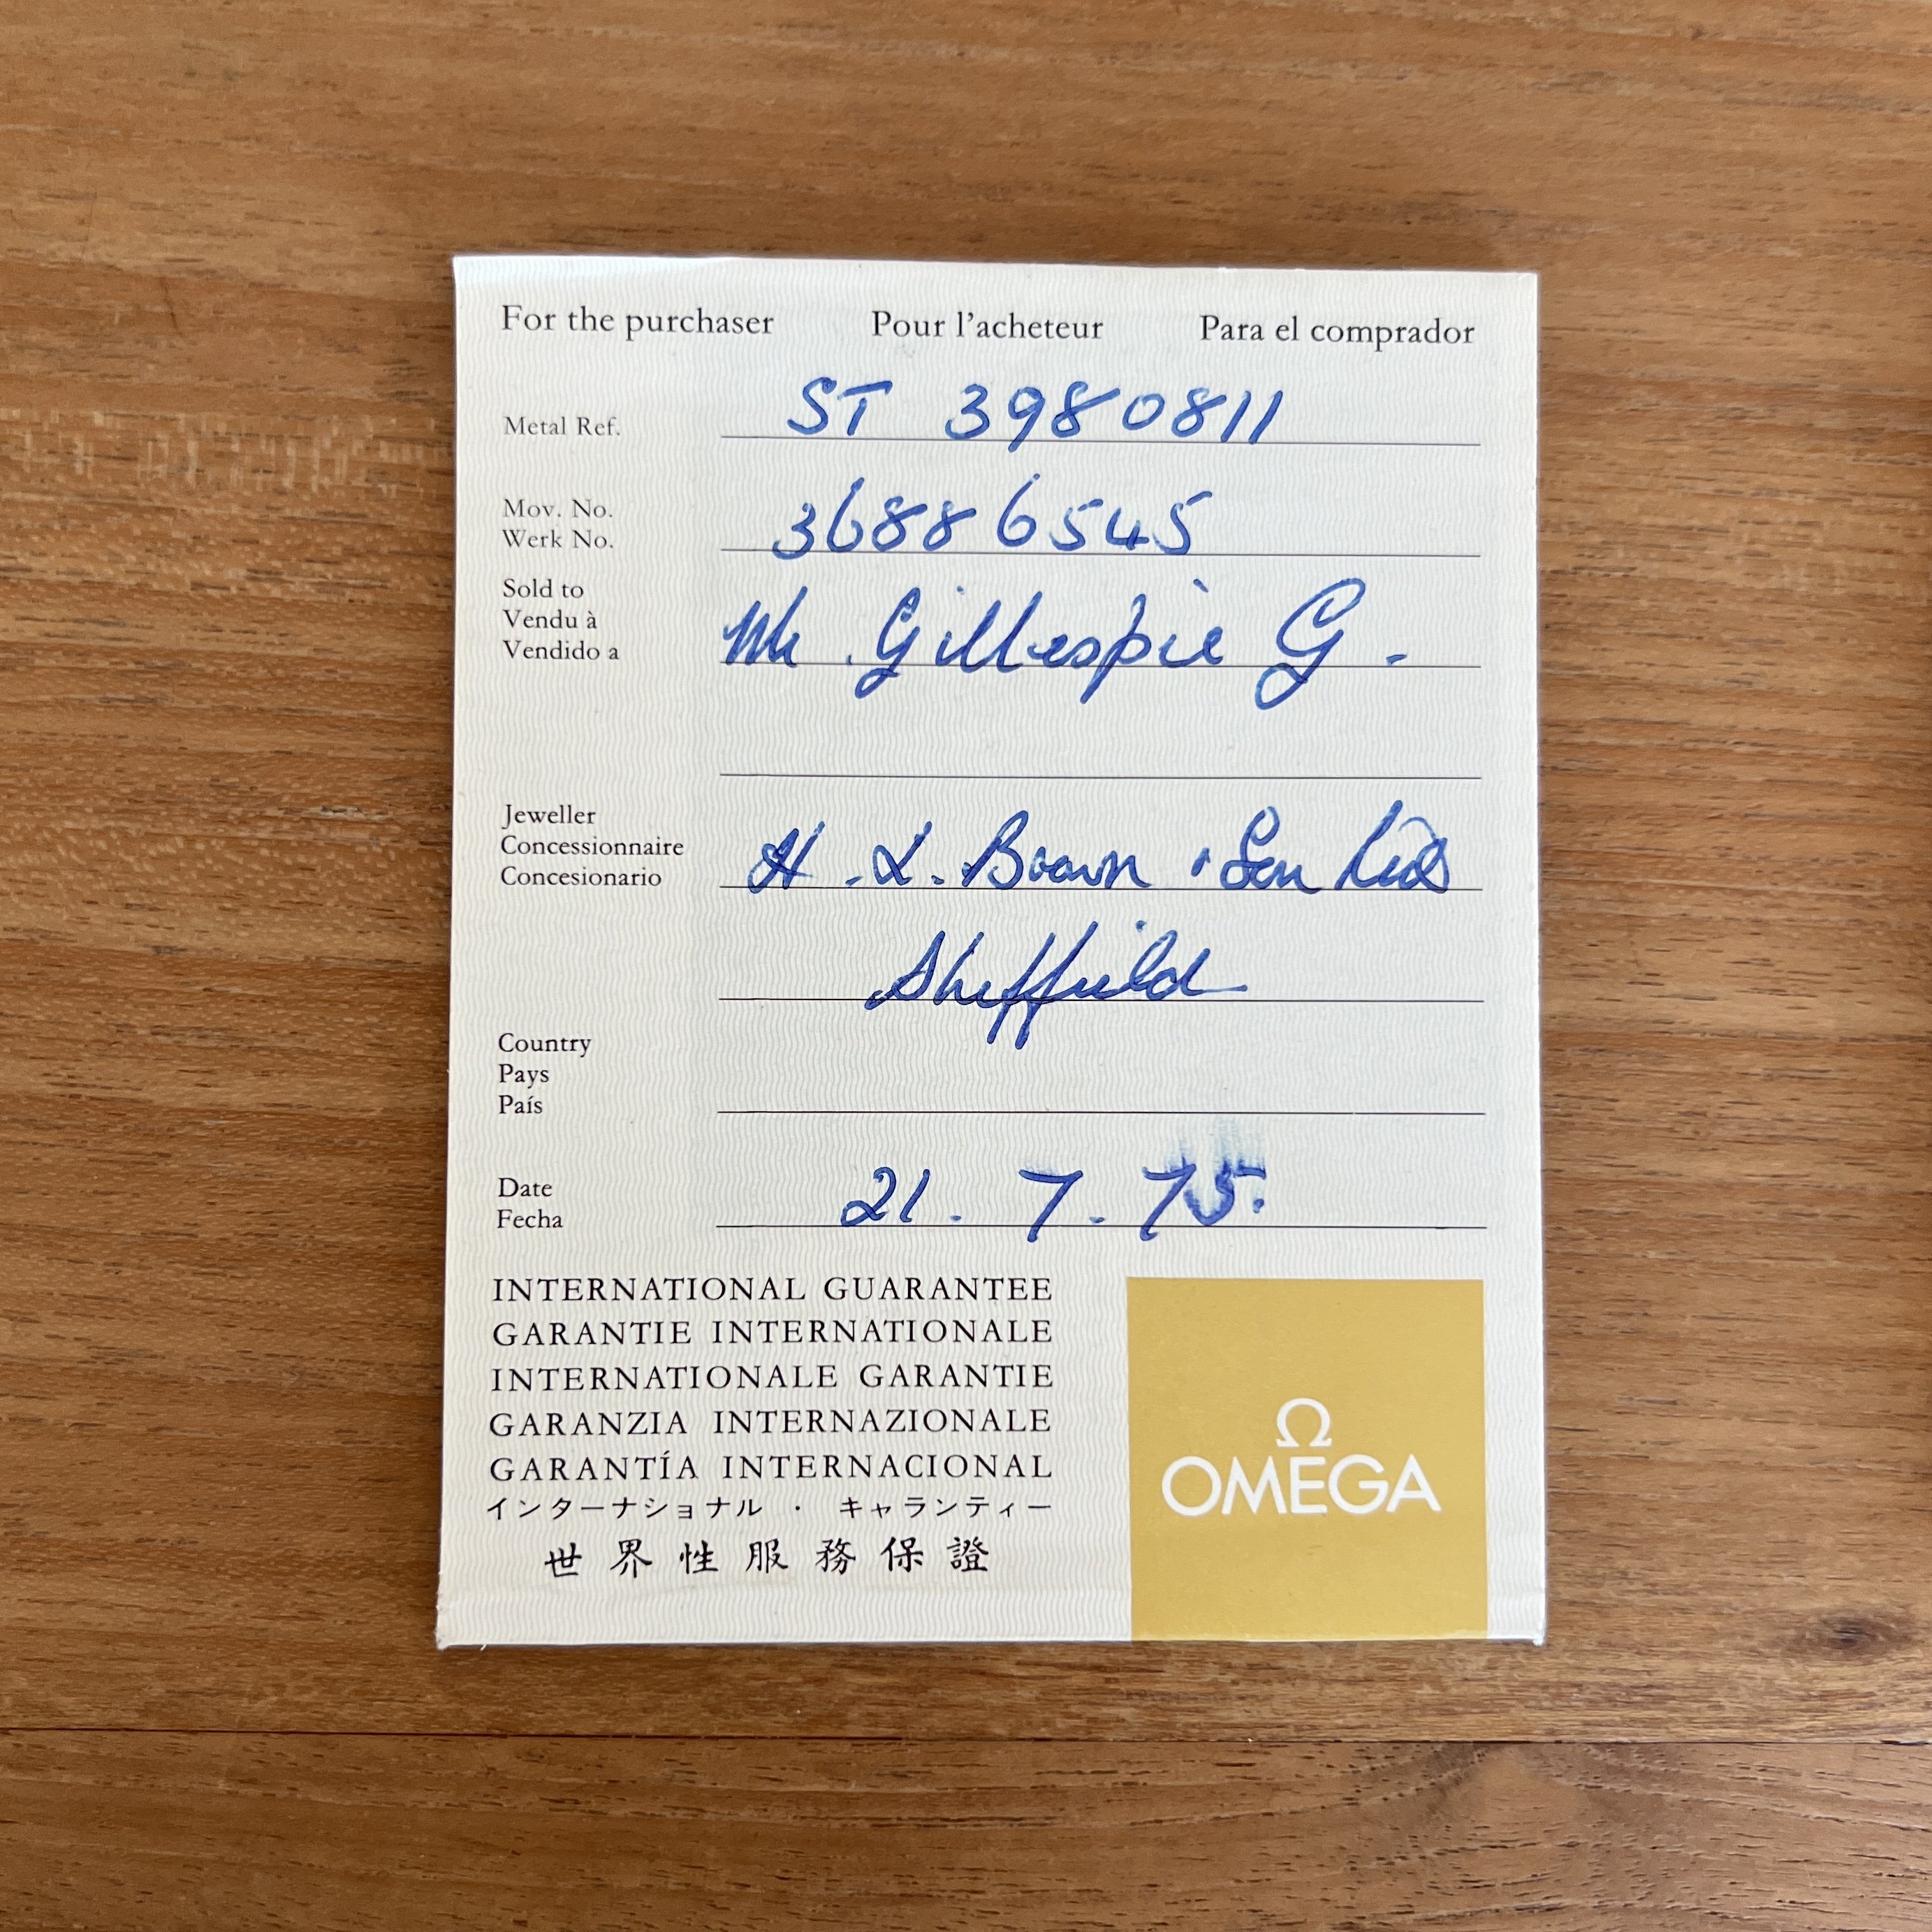 For the purchaser Pour l'acheteur Para el comprador
Metal Ref. ST 3980811
Mov. No.
Werk No. 36886545
Sold to
Vendu à
Vendido a Mr Gillespie G.
Jeweller
Concessionnaire
Concesionario H. L. Brown & Son Ltd
Sheffield
Country
Pays
País
Date
Fecha 21. 7. 75.
INTERNATIONAL GUARANTEE
GARANTIE INTERNATIONALE
INTERNATIONALE GARANTIE
GARANZIA INTERNAZIONALE
GARANTÍA INTERNACIONAL
インターナショナル · キャランティー
世界性服務保證
Ω
OMEGA